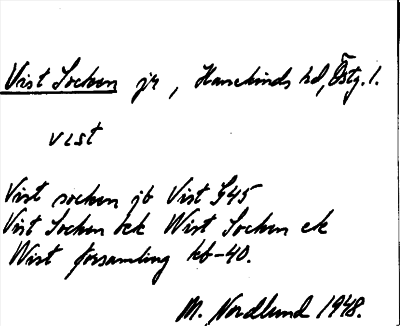 Vist Socken jr, Hanekinds hd, Östg. l.
vist
Vist socken jb Vist S45
Vist Socken Wist Socken ek
Wist församling kb-40.
M. Nordlund 1948.